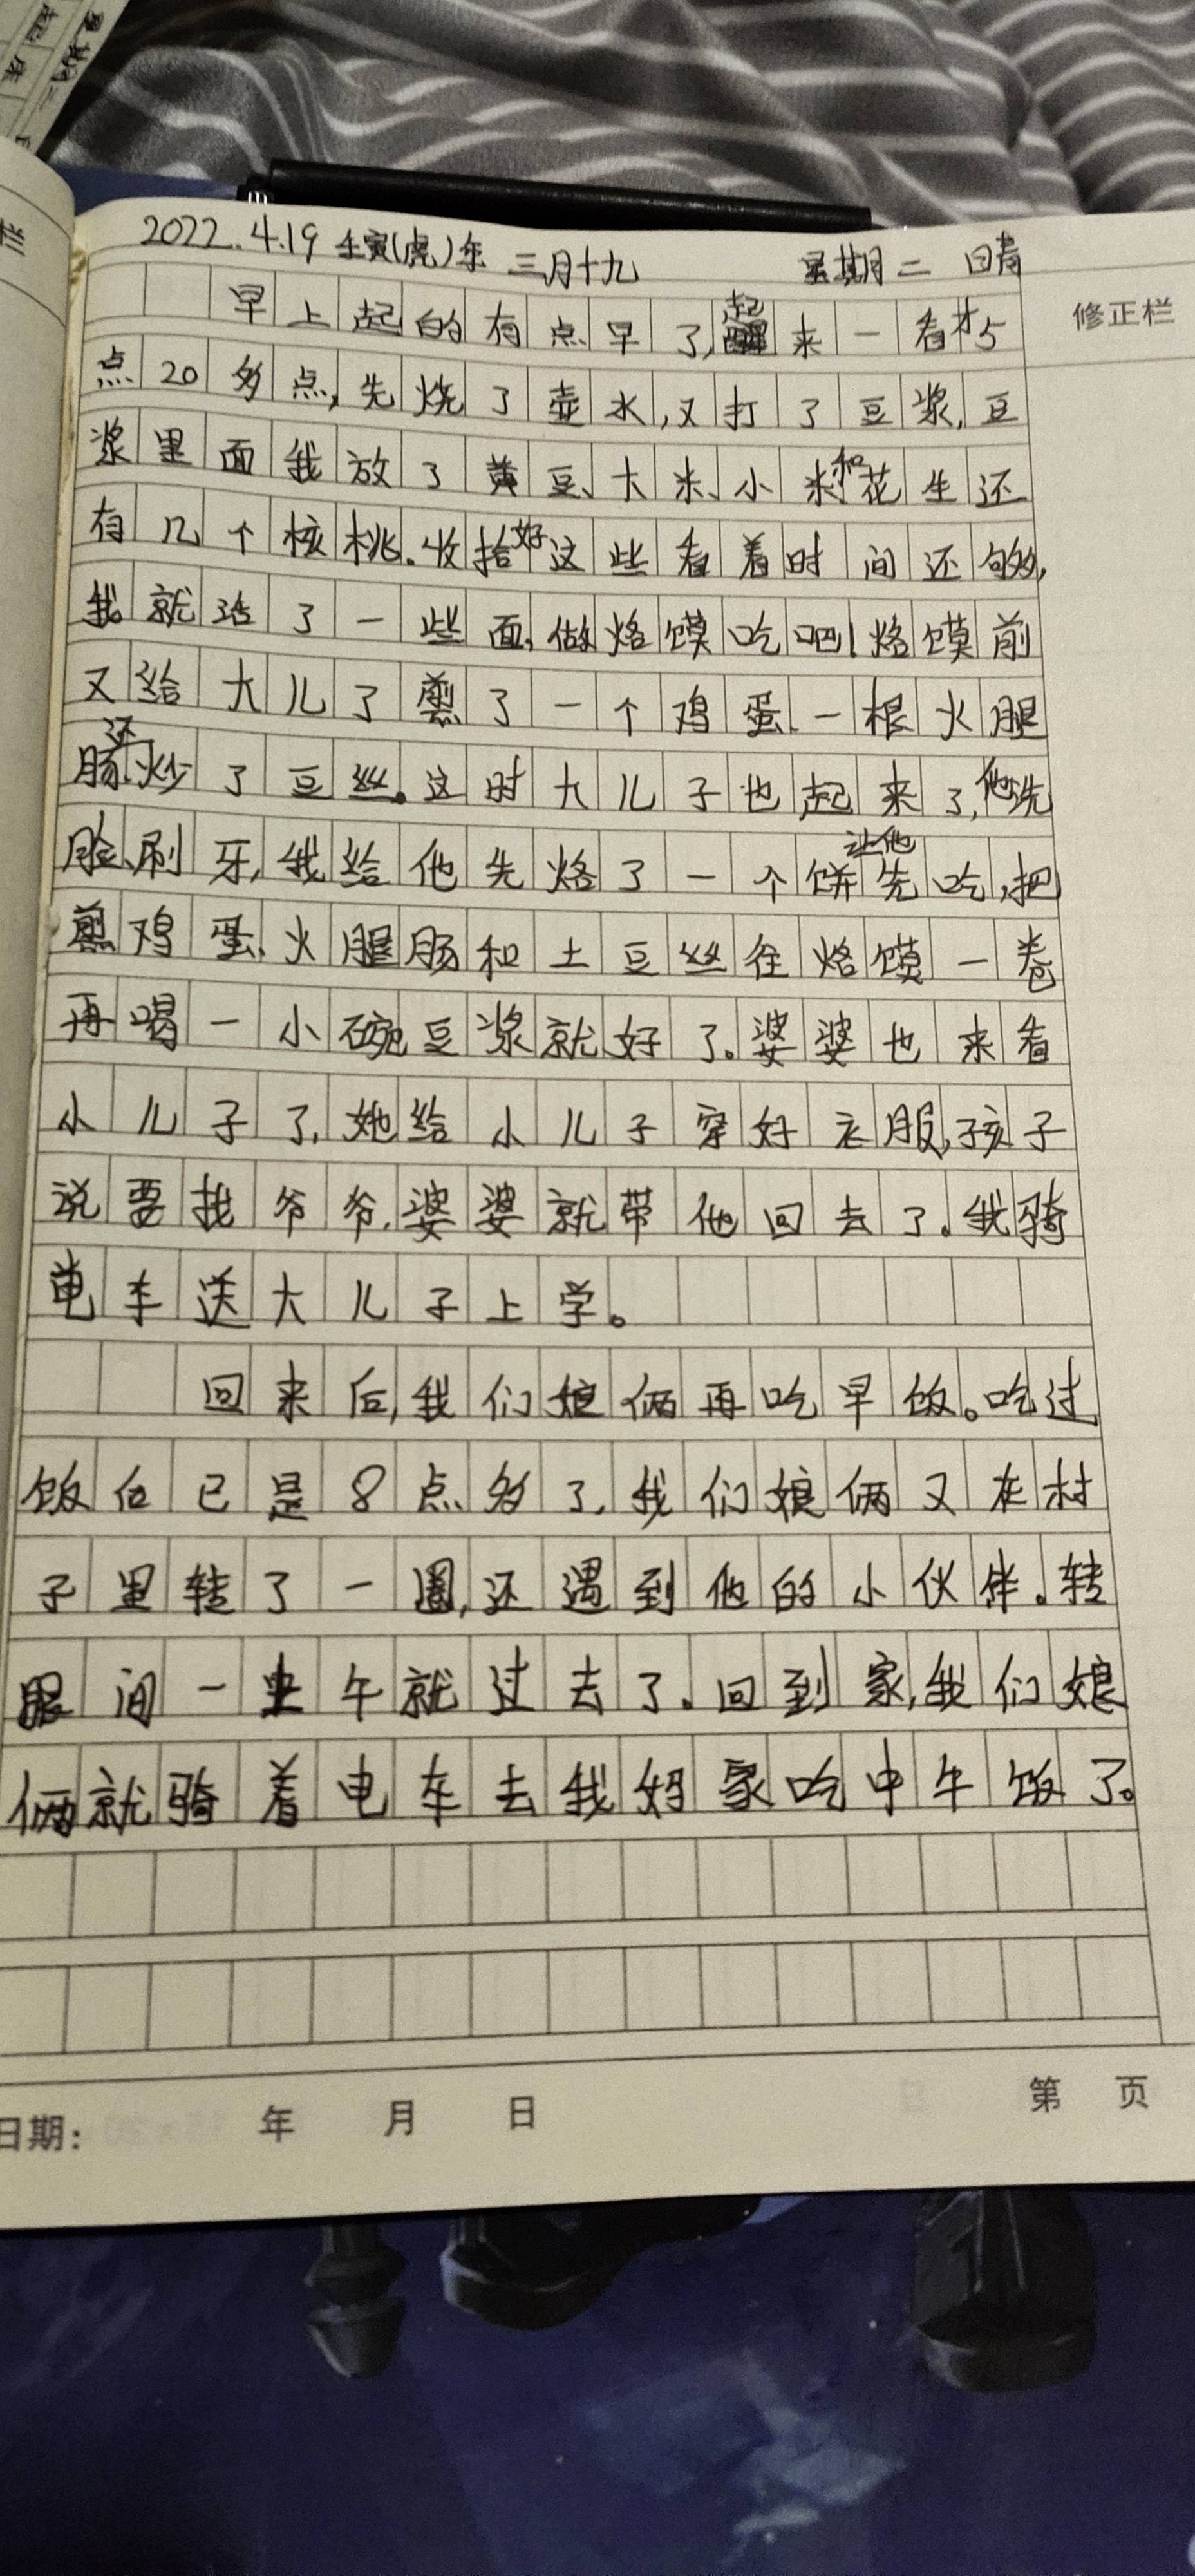 2022.4.19 壬寅(虎)年 三月十九 星期二 晴
修正栏
早上起的有点早了,起来一看才5
点20多点,先烧了壶水,又打了豆浆,豆
浆里面我放了黄豆、大米、小米和花生还
有几个核桃。收拾好这些看着时间还够,
我就活了一些面,做烙馍吃吧!烙馍前
又给大儿了煎了一个鸡蛋、一根火腿
肠、还炒了豆丝。这时大儿子也起来了,他洗
脸、刷牙,我给他先烙了一个饼让他先吃,把
煎鸡蛋、火腿肠和土豆丝往烙馍一卷
再喝一小碗豆浆就好了。婆婆也来看
小儿子了,她给小儿子穿好衣服,孩子
说要找爷爷,婆婆就带他回去了。我骑
电车送大儿子上学。
回来后,我们娘俩再吃早饭。吃过
饭后已是8点多了,我们娘俩又在村
子里转了一圈,还遇到他的小伙伴。转
眼间一上午就过去了。回到家,我们娘
俩就骑着电车去我妈家吃中午饭了。
日期: 年 月 日 第 页